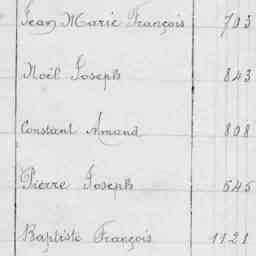 Jean Marie François 703
Noël Joseph 843
Constant Amand 808
Pierre Joseph 545
Baptiste François 1121